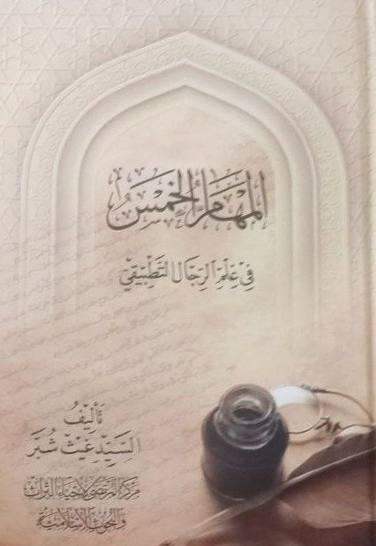 المهام الخمس
في علم الرجال التطبيقي
تأليف
السيد غيث شبر
مركز المرتضى لإحياء التراث
والبحوث الإسلامية